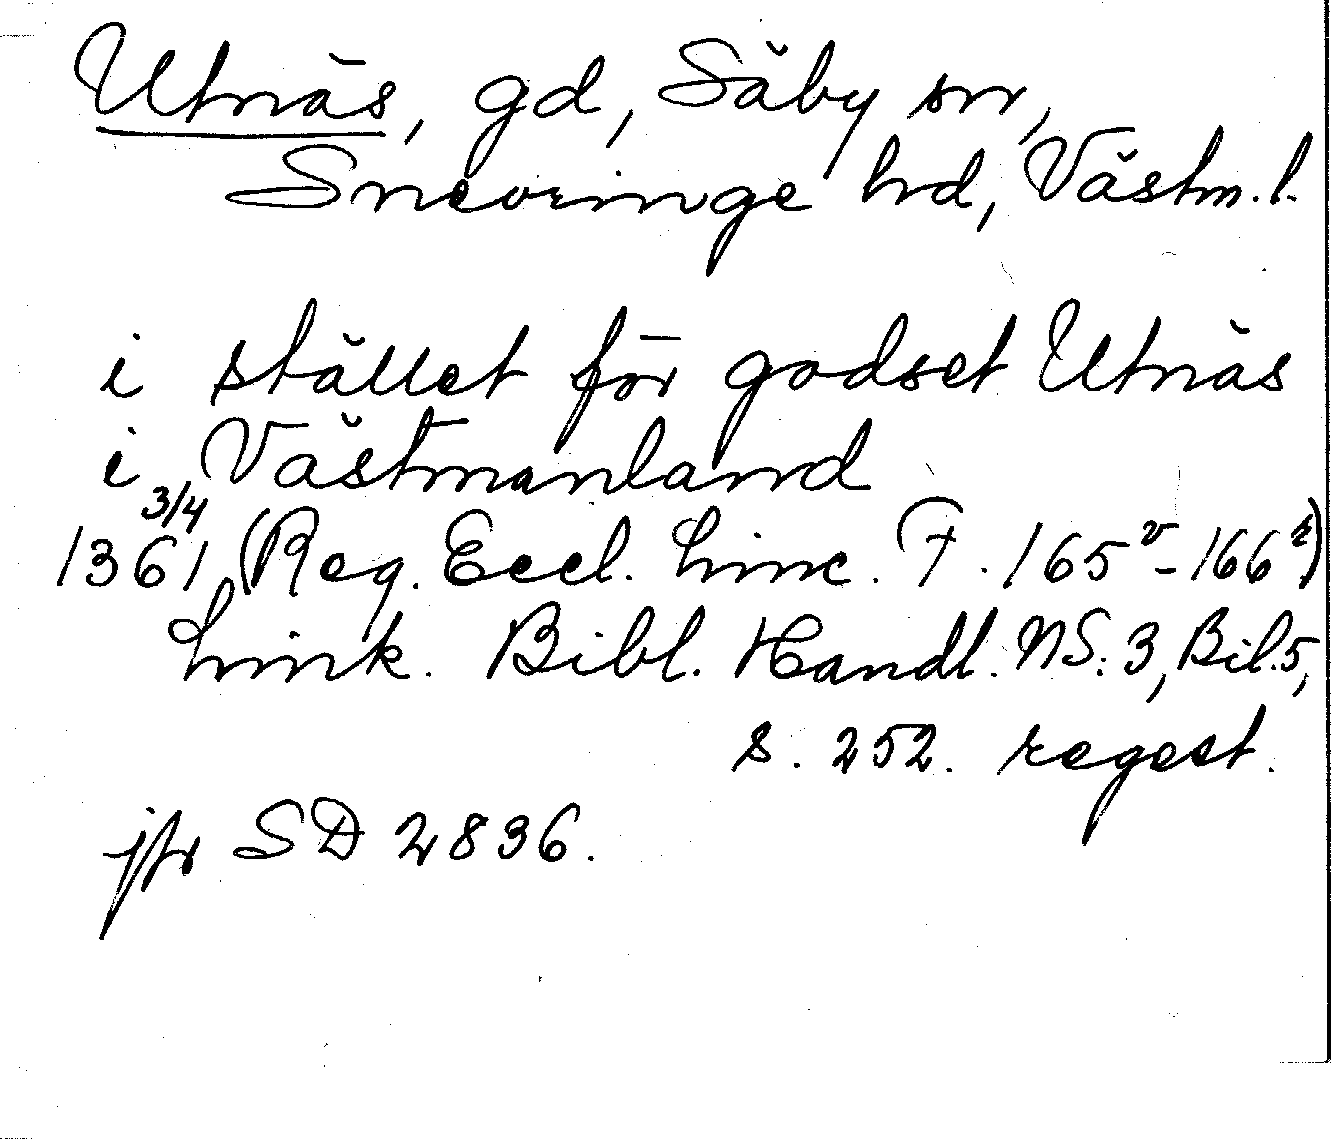 Utnäs, gd, Säby sn,
Snevringe hd, Västm. l.
i stället för godset Utnäs
i Västmanland
1361 3/4 (Reg. Eccl. Linc. F. 165v-166r)
Link. Bibl. Handl. NS. 3, Bil. 5,
s. 252. regest.
jfr SD 2836.